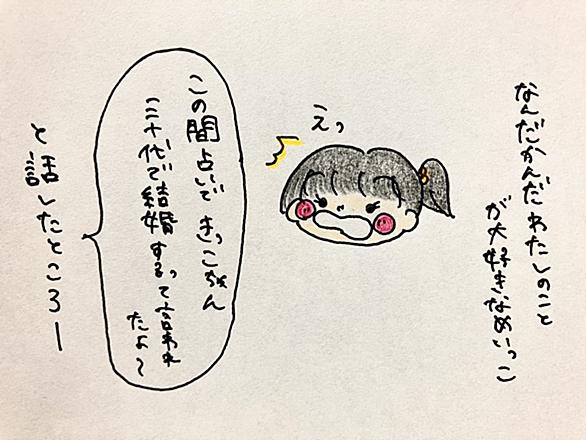 なんだかんだわたしのこと
が大好きなめいっこ
えっ
この間占いできっこちゃん
三十代で結婚するって言われ
たよ〜
と話したところー